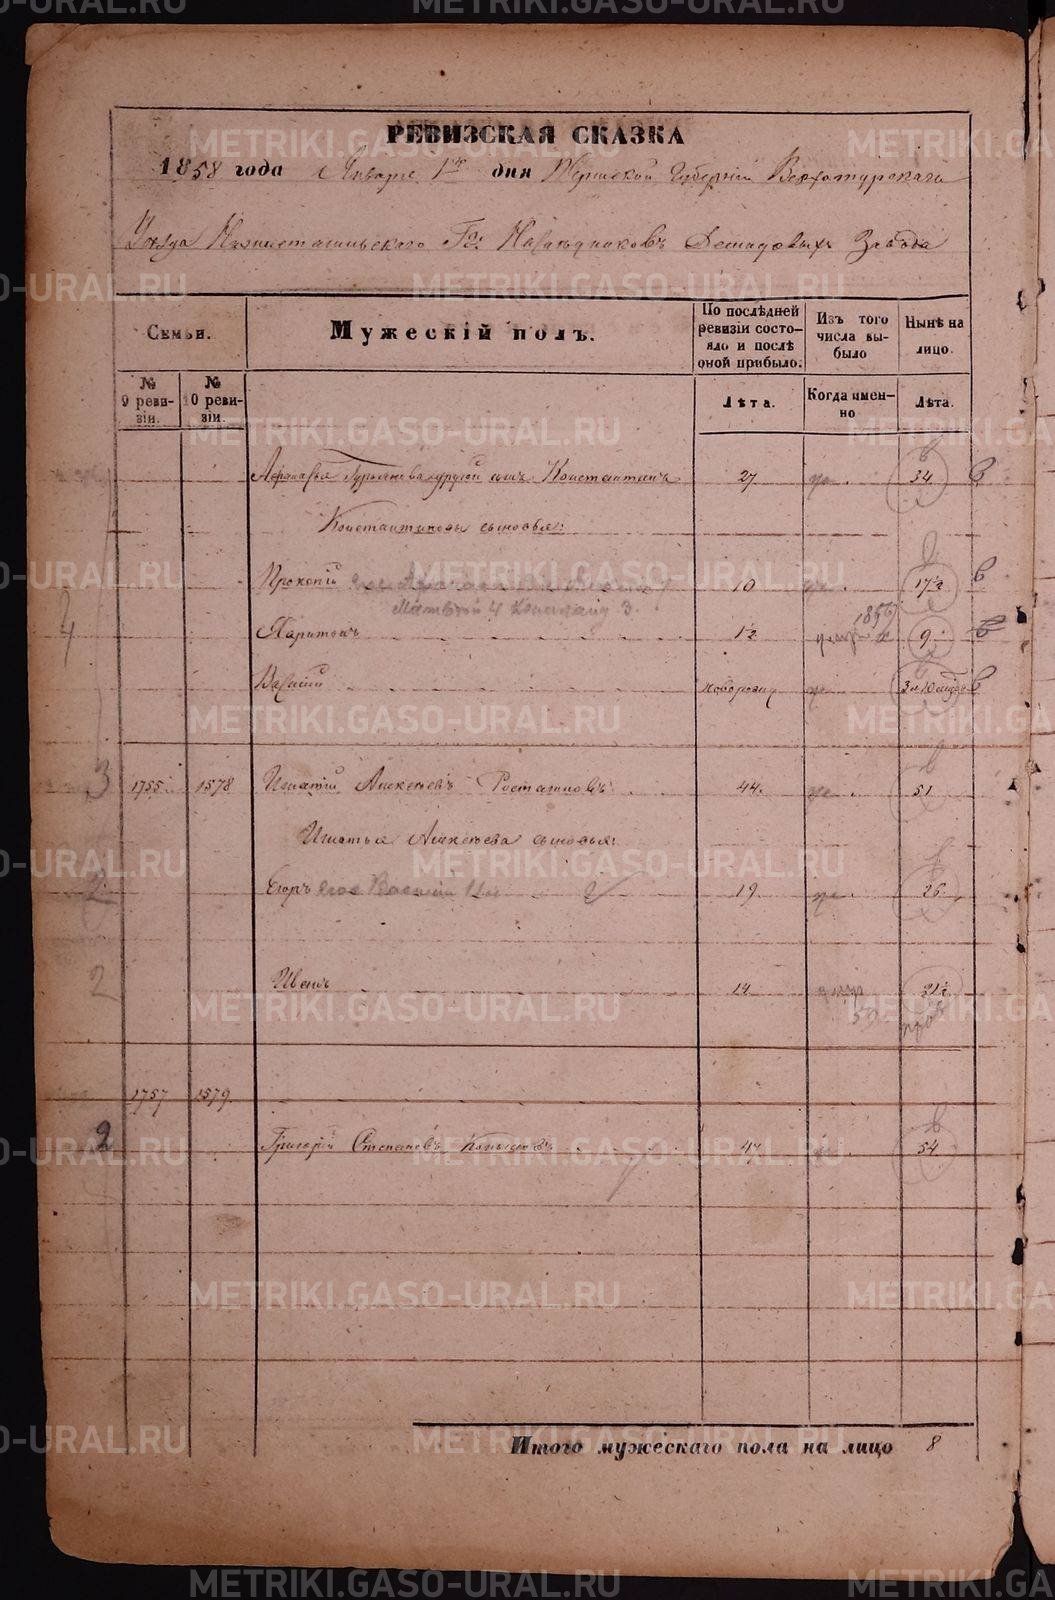 РЕВИЗСКАЯ СКАЗКА
1858 года Января 1го дня Пермской Губернии Верхотурскаго
Уезда Нижнетагильскаго Гг Наследниковъ Демидовыхъ Завода
Семьи.
Мужескій полъ.
По послѣдней ревизіи состояло и послѣ оной прибыло.
Изъ того числа выбыло
Нынѣ на лицо.
№ 9 ревизіи.
№ 10 ревизіи.
Лѣта.
Когда именно
Лѣта.
Афанасья Гурьянова другой сынъ Константинъ 27 34 в
Константиновы сыновья:
Прокопій 10 17½ в
Матвѣй 4 3.
4 Харитонъ 1½ 1856 9 в
Василій новорожд 3 в
3 1755 1578 Игнатій Алексѣевъ 44. 51
Игнатья Алексѣева сыновья:
2 Егоръ его Василій 19. 26.
2 Иванъ 14 21½
1757 1579.
2 Григорій Степановъ 47 54
Итого мужескаго пола на лицо 8
METRIKI.GASO-URAL.RU